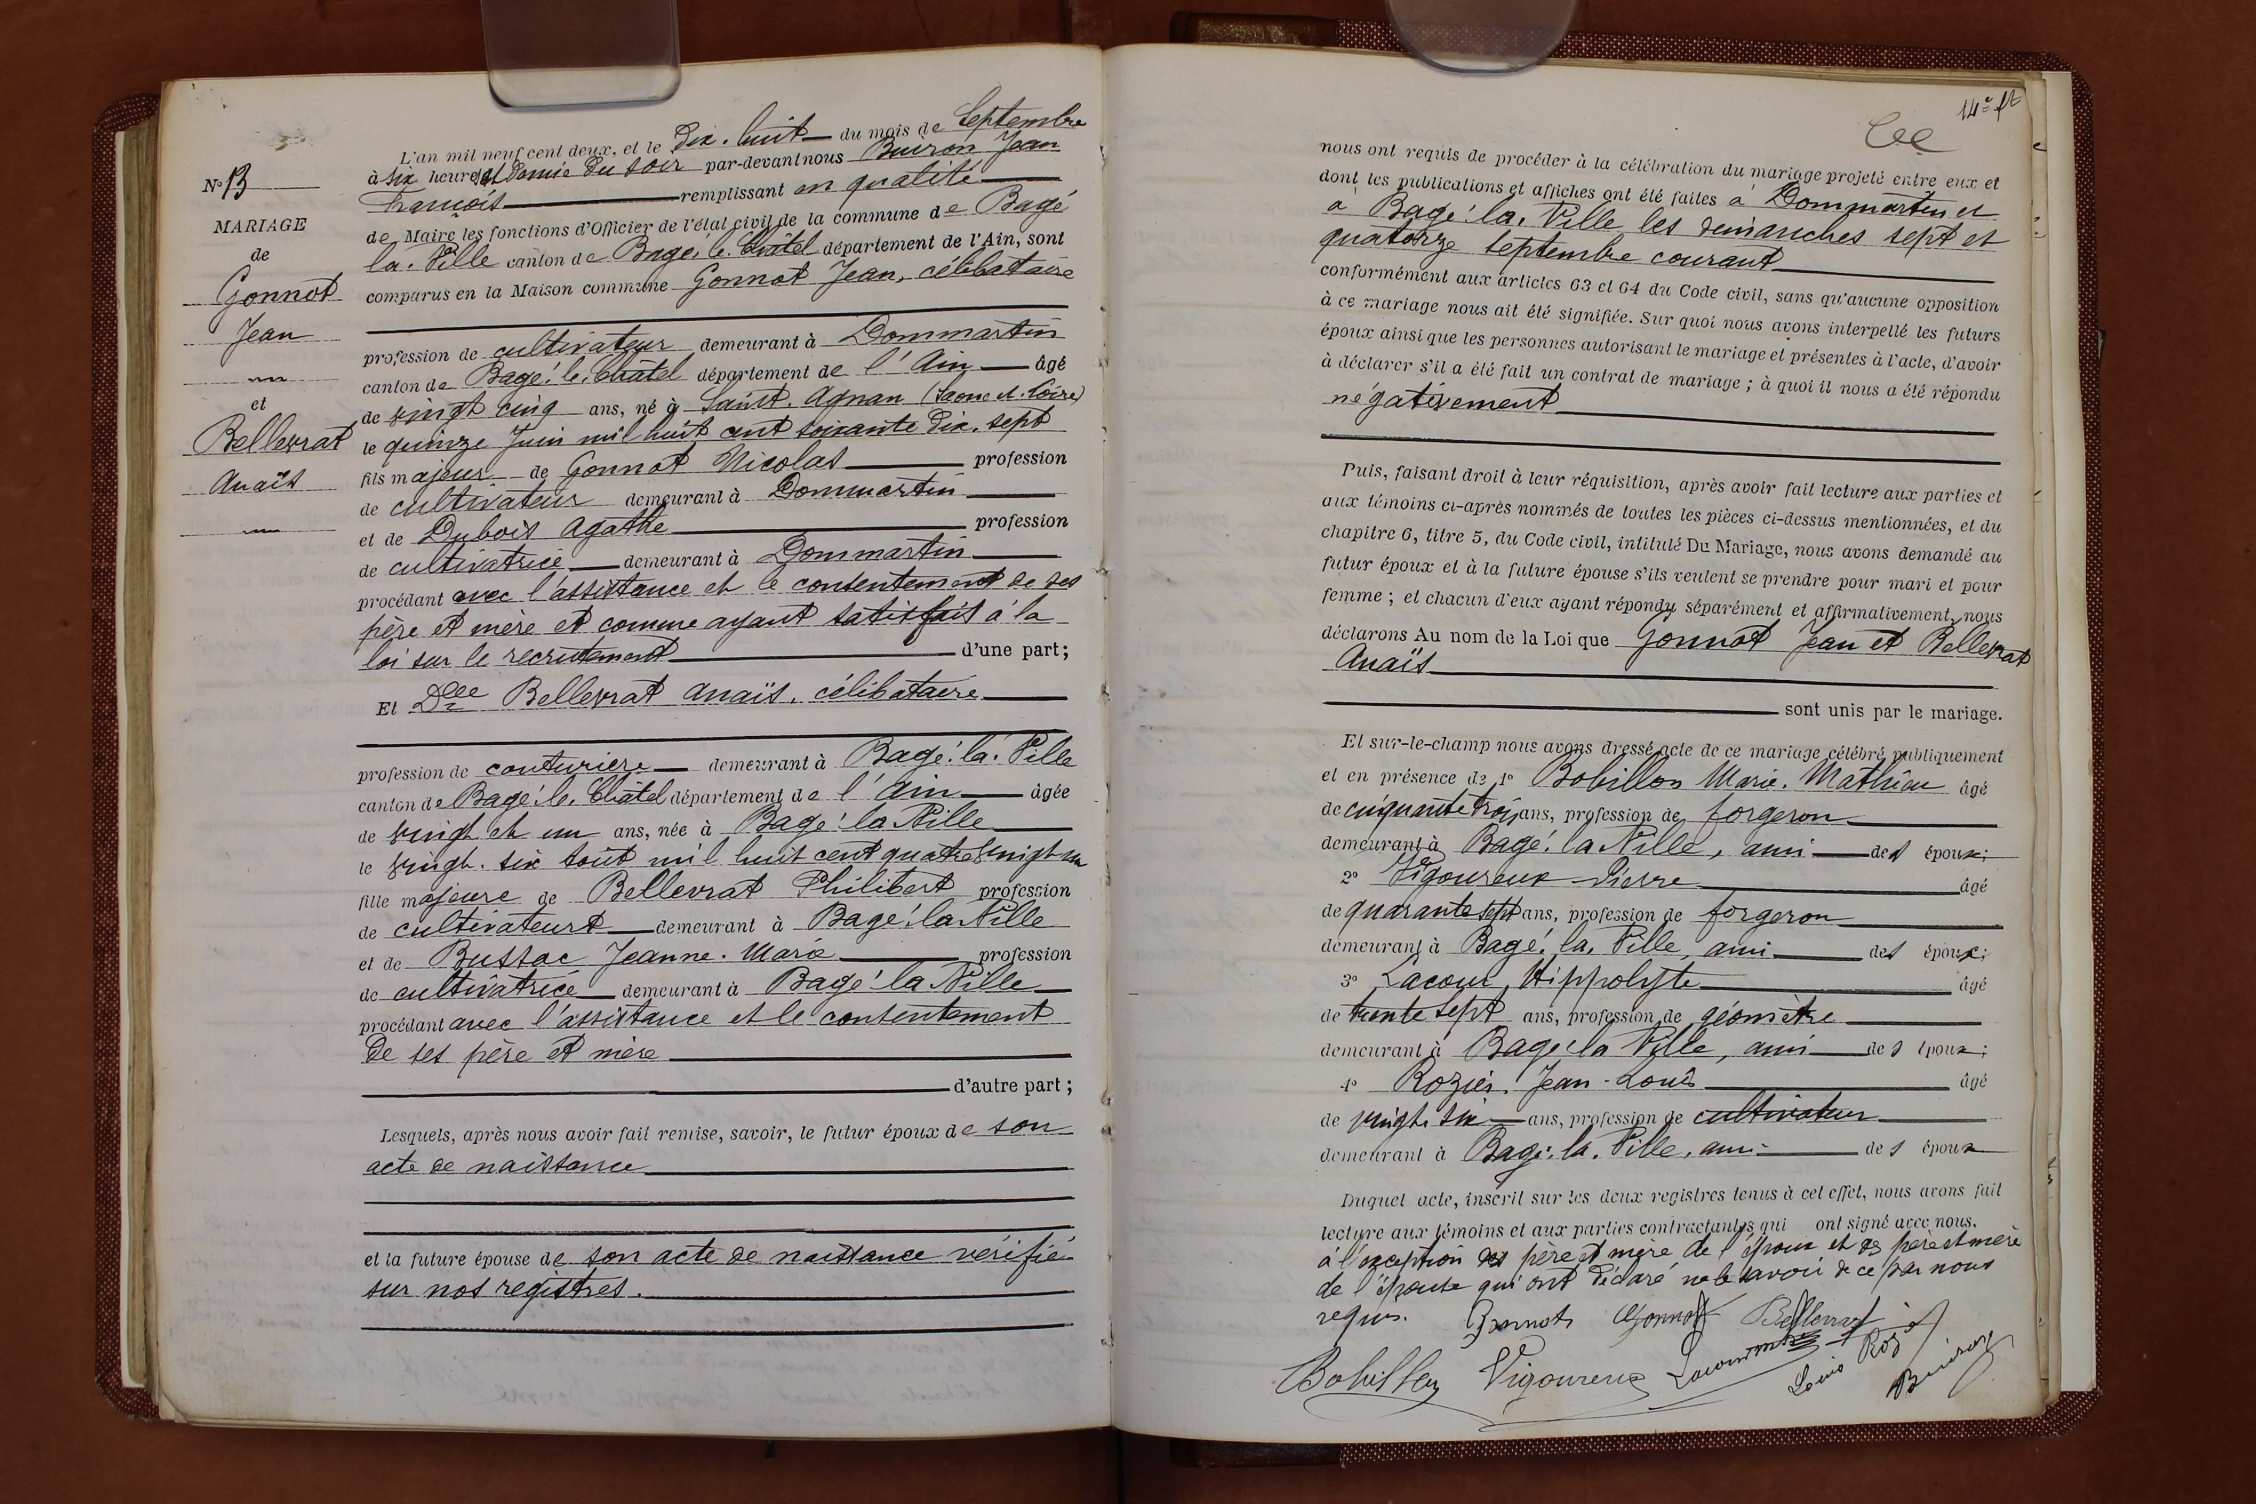 N° 13
MARIAGE
de
Gonnot
Jean
et
Bellevrat
Anaïs
L'an mil neuf cent deux, et le Dix-huit du mois de Septembre
à six heures et Demie du soir par-devant nous Buiron Jean
François remplissant en qualité
de Maire les fonctions d'Officier de l'état civil de la commune de Bagé
la-Ville canton de Bagé-le-Châtel département de l'Ain, sont
comparus en la Maison commune Gonnot Jean, célibataire
profession de cultivateur demeurant à Dommartin
canton de Bagé-le-Châtel département de l'Ain âgé
de vingt cinq ans, né à Saint-Agnan (Saone et Loire)
le quinze Juin mil huit cent soixante dix-sept
fils majeur de Gonnot Nicolas profession
de cultivateur demeurant à Dommartin
et de Dubois Agathe profession
de cultivatrice demeurant à Dommartin
procédant avec l'assistance et le consentement de ses
père et mère et comme ayant satisfait à la
loi sur le recrutement d'une part;
Et Dlle Bellevrat Anaïs, célibataire
profession de couturière demeurant à Bagé-la-Ville
canton de Bagé-le-Châtel département de l'Ain âgée
de vingt et un ans, née à Bagé-la Ville
le vingt-six août mil huit cent quatre vingt un
fille majeure de Bellevrat Philibert profession
de cultivateur demeurant à Bagé-la Ville
et de Bussac Jeanne-Marie profession
de cultivatrice demeurant à Bagé-la Ville
procédant avec l'assistance et le consentement
de ses père et mère
d'autre part;
Lesquels, après nous avoir fait remise, savoir, le futur époux de son
acte de naissance
et la future épouse de son acte de naissance vérifié
sur nos registres.
14e ft
nous ont requis de procéder à la célébration du mariage projeté entre eux et
dont les publications et affiches ont été faites à Dommartin et
à Bagé-la-Ville les dimanches sept et
quatorze septembre courant
conformément aux articles 63 et 64 du Code civil, sans qu'aucune opposition
à ce mariage nous ait été signifiée. Sur quoi nous avons interpellé les futurs
époux ainsi que les personnes autorisant le mariage et présentes à l'acte, d'avoir
à déclarer s'il a été fait un contrat de mariage; à quoi il nous a été répondu
négativement
Puis, faisant droit à leur réquisition, après avoir fait lecture aux parties et
aux témoins ci-après nommés de toutes les pièces ci-dessus mentionnées, et du
chapitre 6, titre 5, du Code civil, intitulé Du Mariage, nous avons demandé au
futur époux et à la future épouse s'ils veulent se prendre pour mari et pour
femme; et chacun d'eux ayant répondu séparément et affirmativement, nous
déclarons Au nom de la Loi que Gonnot Jean et Bellevrat
Anaïs
sont unis par le mariage.
Et sur-le-champ nous avons dressé acte de ce mariage célébré publiquement
et en présence de 1° Bobillon Marie-Mathieu âgé
de cinquante trois ans, profession de forgeron
demeurant à Bagé-la Ville, ami des époux;
2° Vigoureux Pierre âgé
de quarante sept ans, profession de forgeron
demeurant à Bagé-la-Ville, ami des époux;
3° Lacour Hippolyte âgé
de trente sept ans, profession de géomètre
demeurant à Bagé-la Ville, ami des époux;
4° Rozier Jean-Louis âgé
de vingt-six ans, profession de cultivateur
demeurant à Bagé-la-Ville, ami des époux
Duquel acte, inscrit sur les deux registres tenus à cet effet, nous avons fait
lecture aux témoins et aux parties contractantes qui ont signé avec nous.
à l'exception des père et mère de l'époux et des père et mère
de l'épouse qui ont déclaré ne le savoir de ce par nous
requis. Gonnot Gonnot Bellevrat
Bobillon Vigoureux Lacour Louis Buiron